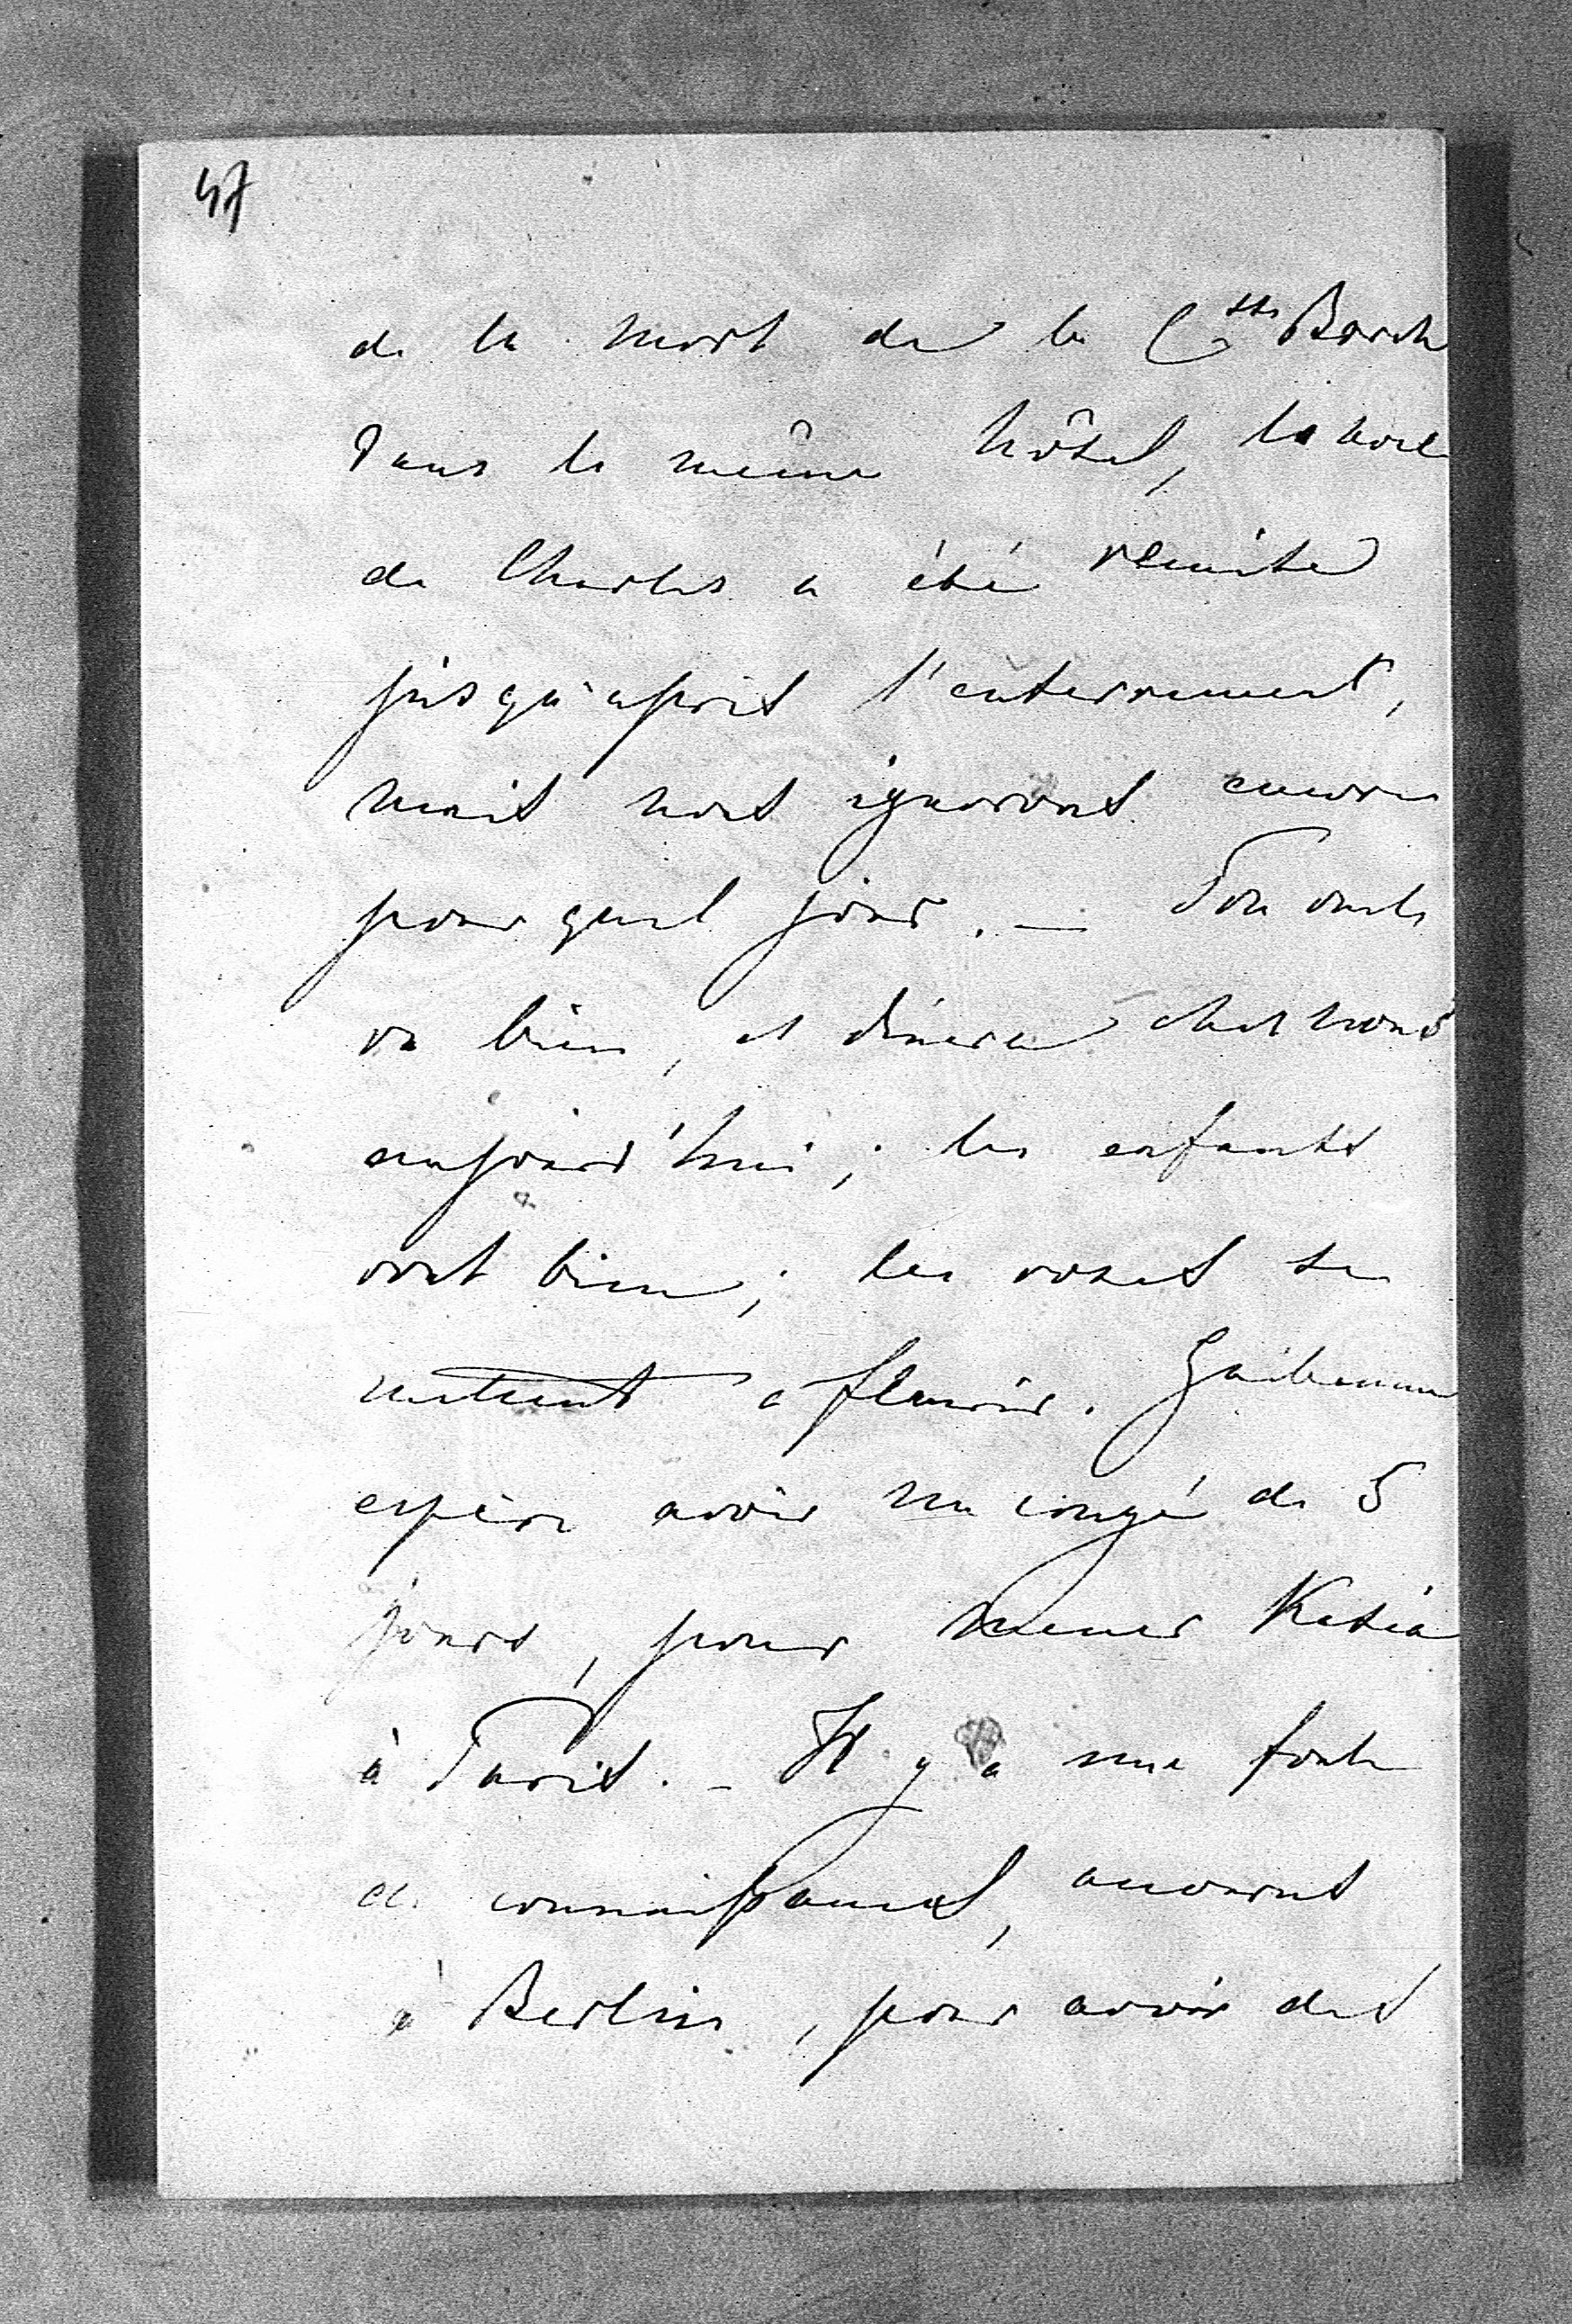 47
de la mort de la Csse Borch
dans le même hôtel, la noce
de Charles a été remise
jusqu'après l'enterrement,
mais nous ignorons encore
pour quel jour. — Ton oncle
va bien, et dinera chez nous
aujourd'hui ; les enfants
vont bien ; les roses se
mettent à fleurir.
espère avoir un congé de 5
jours, pour mener Katia
à Paris. — Il y a une foule
de connaissances, accourent
à Berlin, pour avoir des